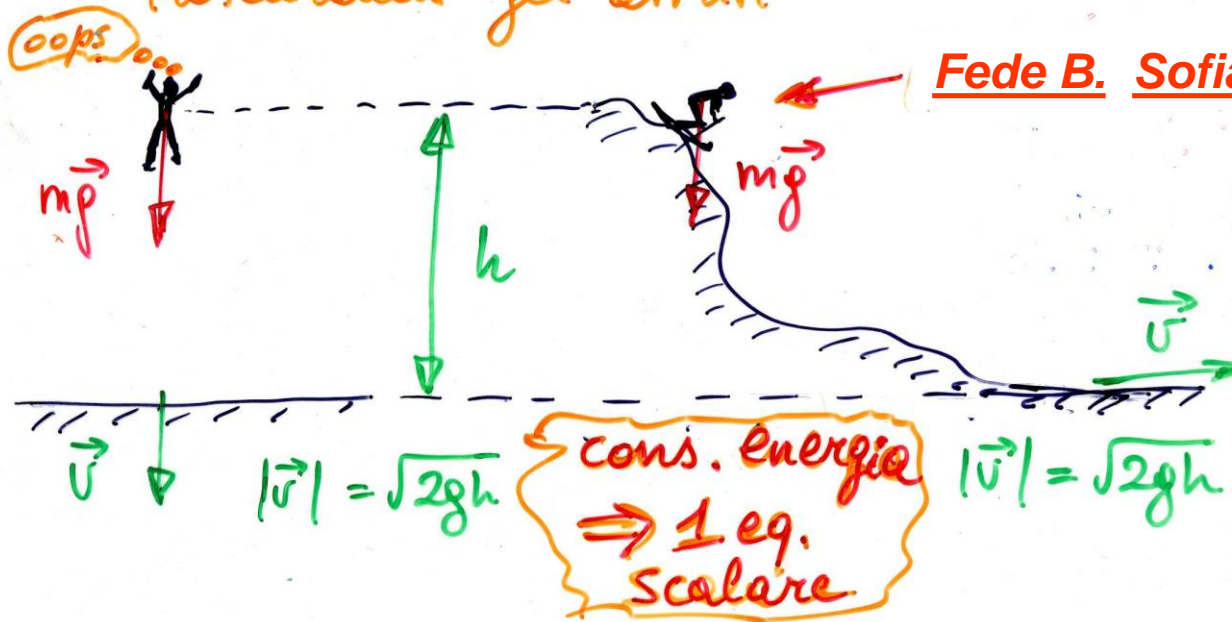 gli
oops
Fede B. Sofia
mg⃗
h
mg⃗
v⃗
v⃗
|v⃗| = √2gh
cons. energia
⇒ 1 eq.
scalare
|v⃗| = √2gh